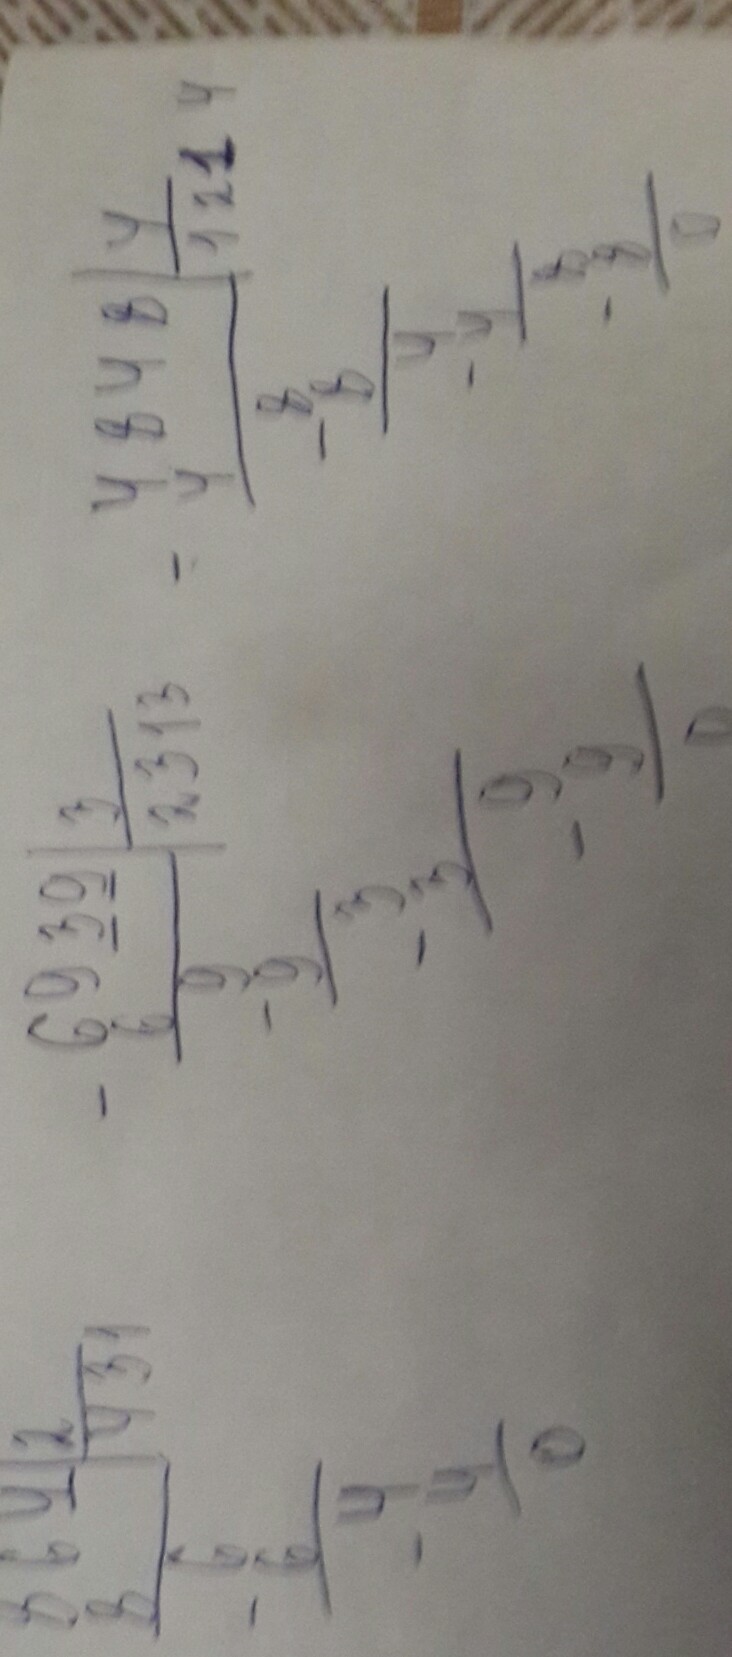 864 | 2
8 | 431
6
- 6
4
- 4
0
- 6939 | 3
6 | 2313
9
- 9
3
- 3
9
- 9
0
- 4848 | 4
4 | 1214
8
- 8
4
- 4
8
- 8
0